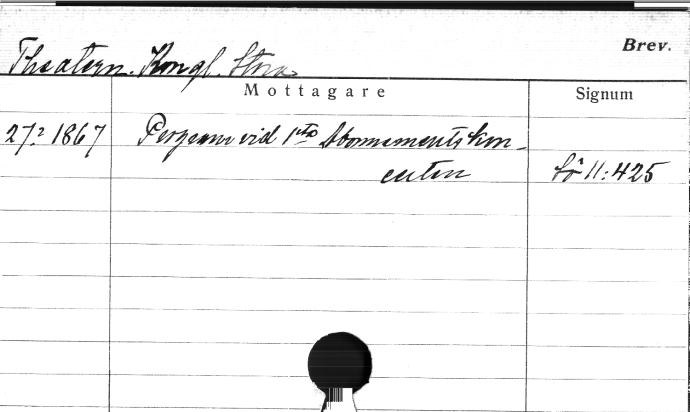 Brev.
Theatern. Kongl. Stora
Mottagare
Signum
27/2 1867
vid 1sta Abonnementskon-
certen
Sö 11:425